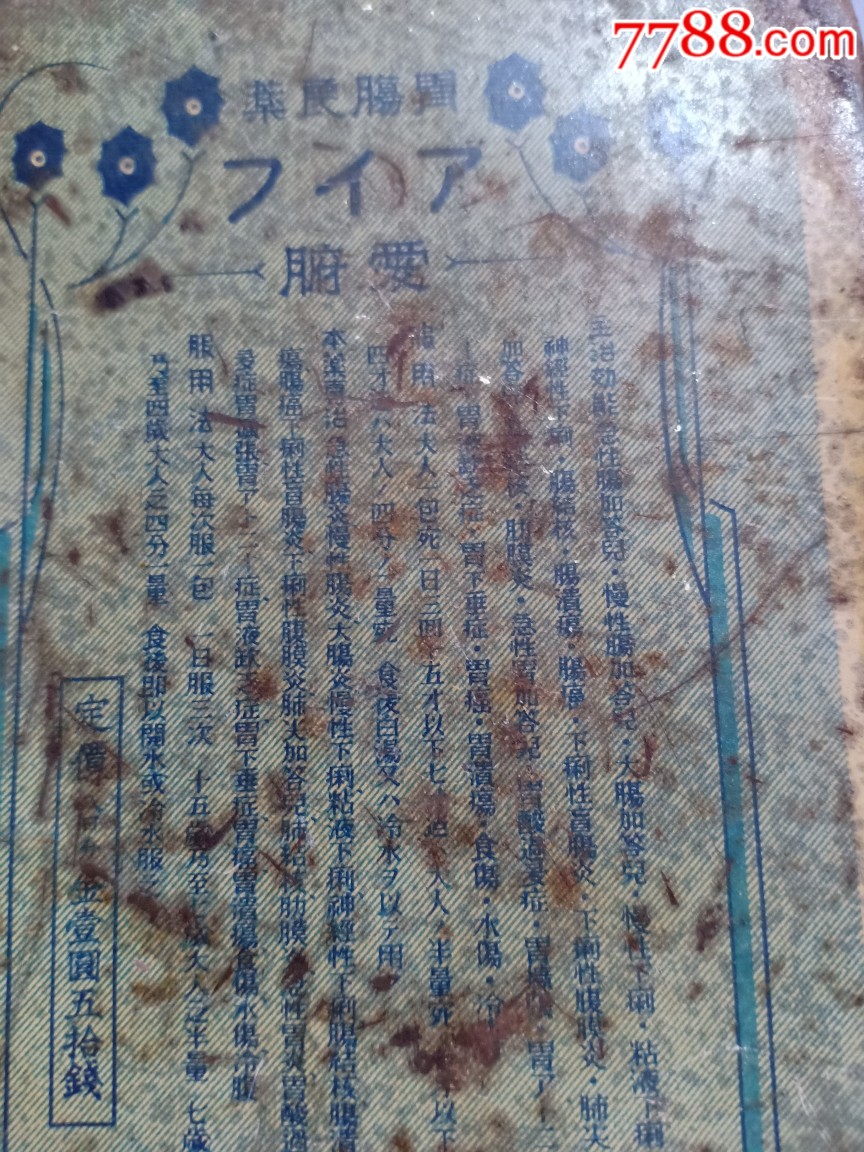 7788.com
胃腸良薬
アイフ
愛腑
主治効能急性腸加答兒・慢性腸加答兒・大腸加答兒・慢性下痢・粘液下痢
神經性下痢・腸結核・腸潰瘍・腸癌・下痢性盲腸炎・下痢性腹膜炎・肺尖
加答 核・肋膜炎・急性胃加答兒・胃酸過多症・胃擴張・胃アトニ
ー症・胃液缺乏症・胃下垂症・胃癌・胃潰瘍・食傷・水傷・冷
用法大人一包宛一日三回 五才以下七 迄 大人 半量宛 以下
四才 ハ大人 四分ノ一量宛 食後白湯又ハ冷水ヲ以テ用
本薬專治急性腸炎慢性腸炎大腸炎慢性下痢粘液下痢神經性下痢腸結核腸潰
瘍腸癌下痢性盲腸炎下痢性腹膜炎肺尖加答兒肺結核肋膜 急性胃炎胃酸過
多症胃擴張胃アトニー症胃液缺乏症胃下垂症胃癌胃潰瘍食傷水傷冷腹
服用法大人每次服一包 一日服三次 十五 乃至 歲大人之半量 七歲
乃至四歲大人之四分一量 食後即以開水或冷水服
定價 金壹圓五拾錢